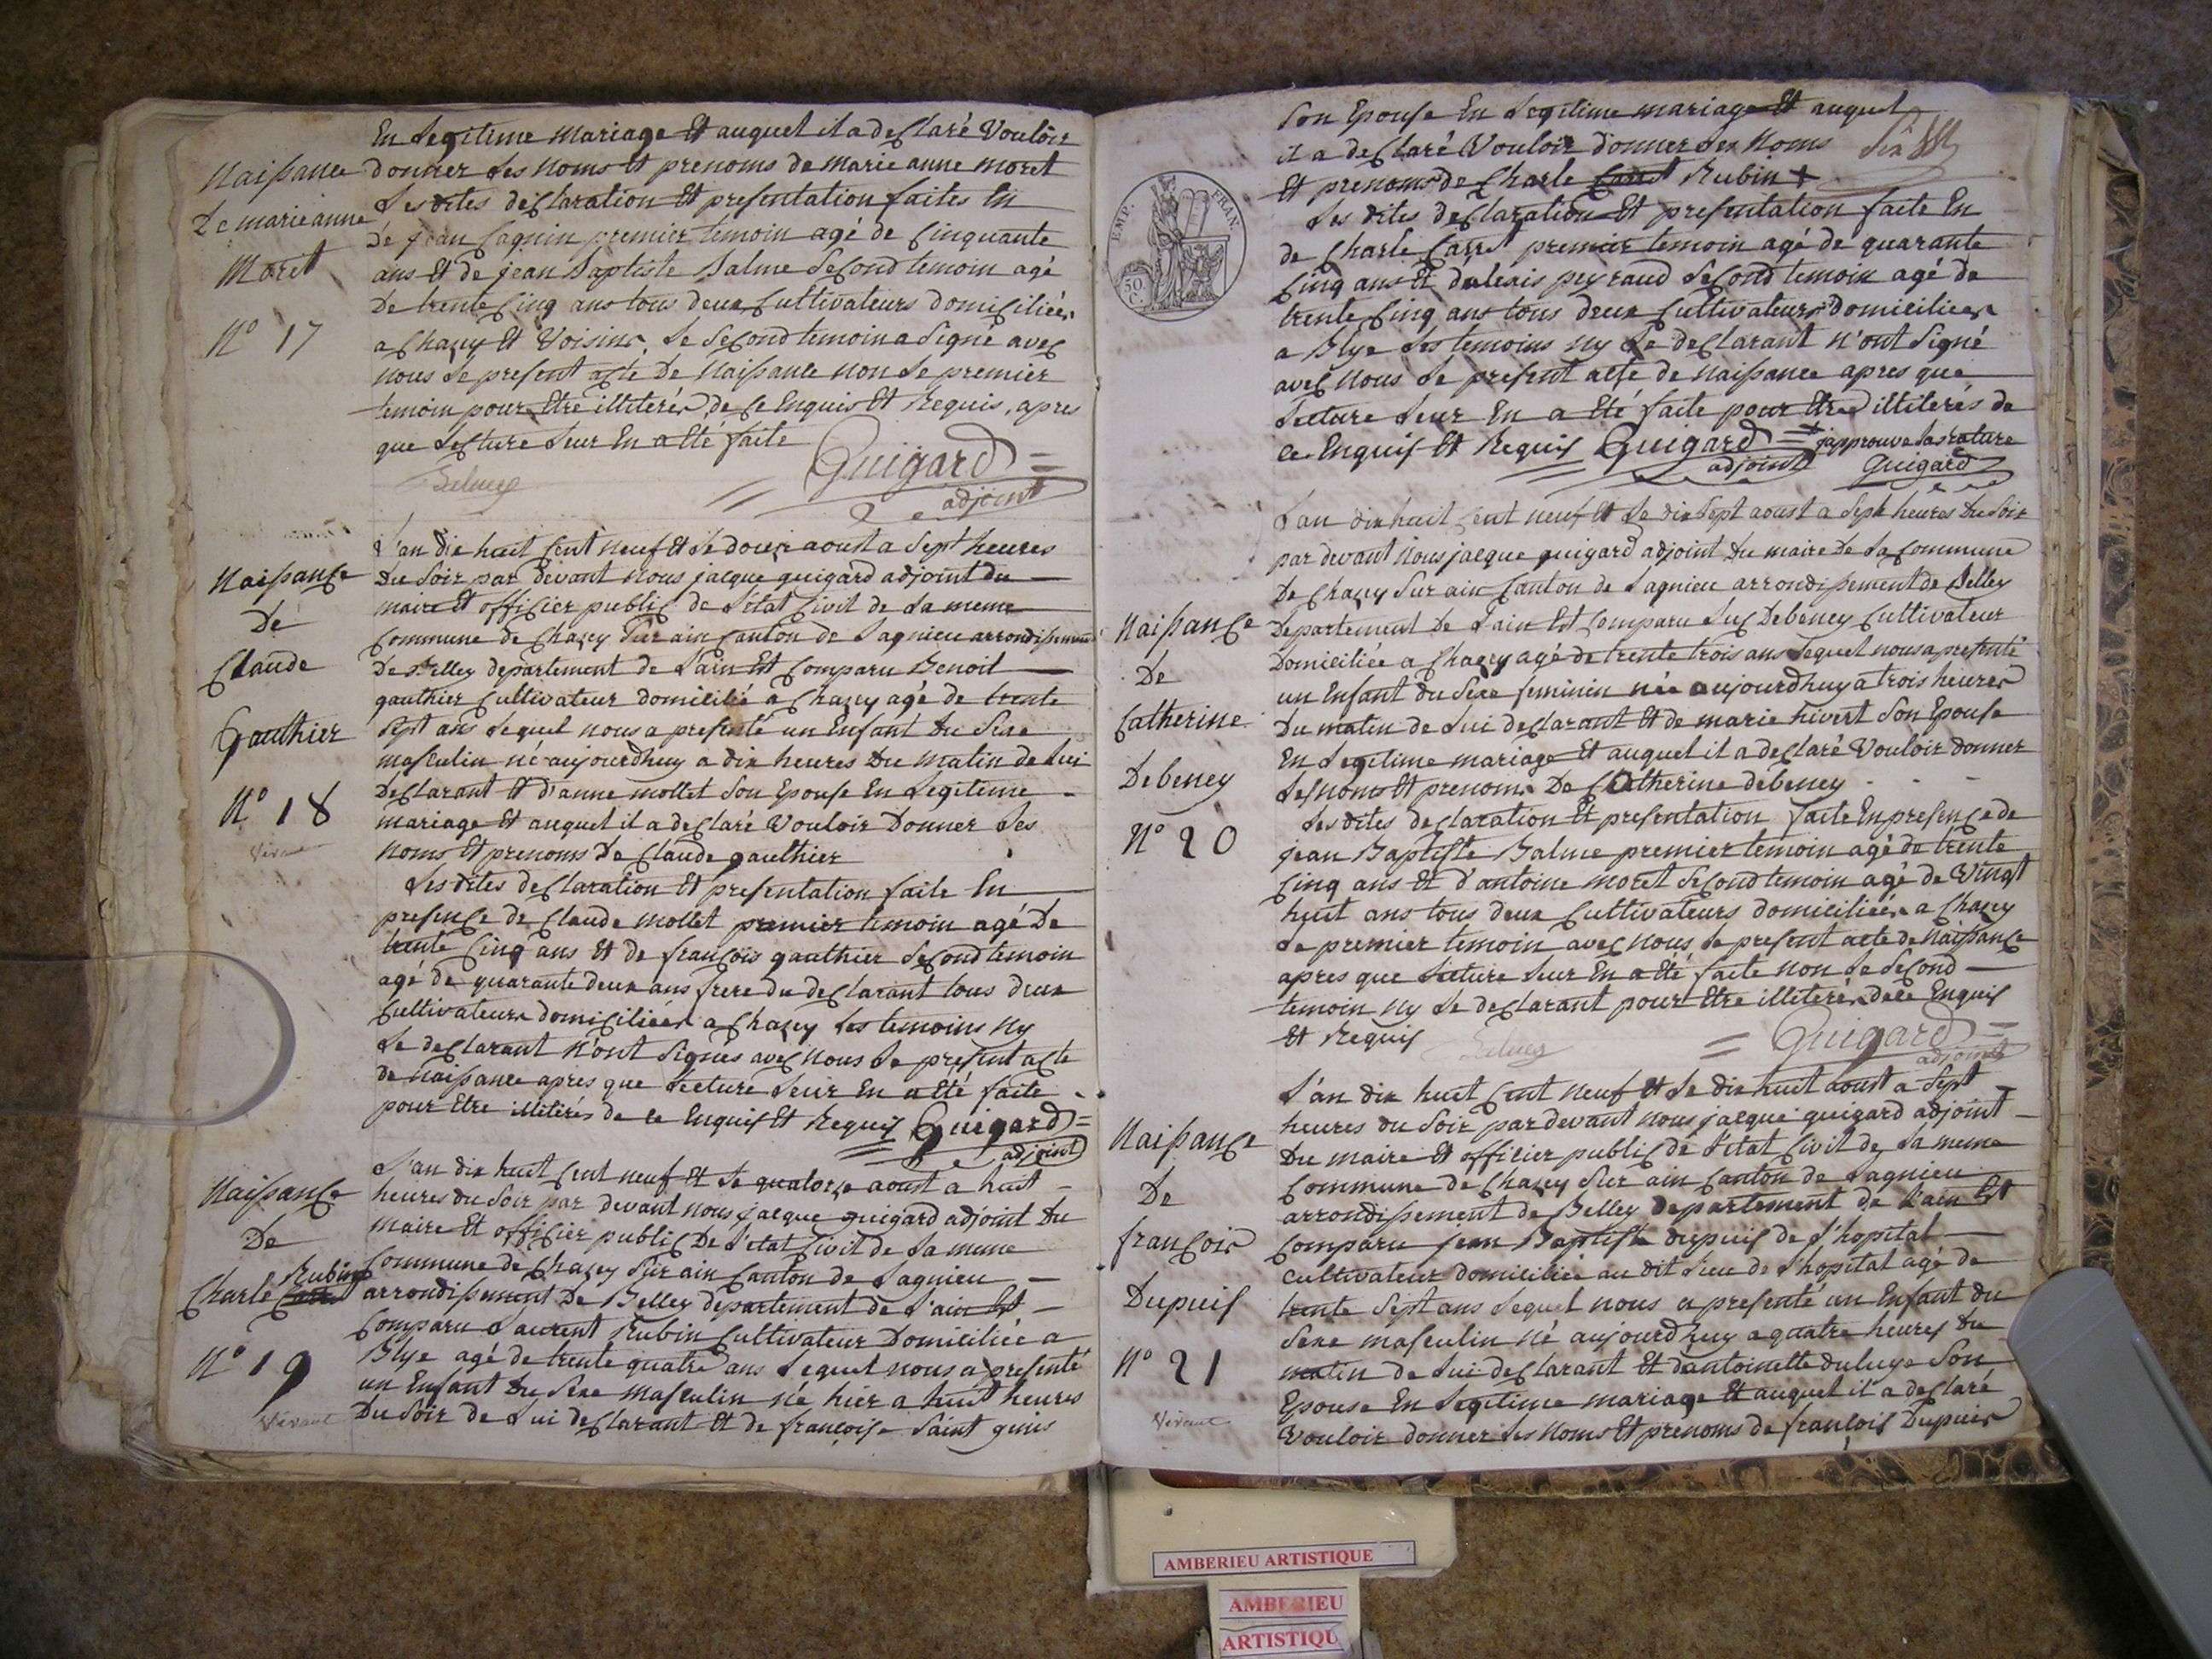 En Legitime mariage Et auquel il a declaré Vouloir
Naissance
De marie anne
Moret
N° 17
donner Les Noms Et prenoms de marie anne moret
Les dites declaration Et presentation faites En
de jean Cagnin premier temoin agé de Cinquante
ans Et de jean Baptiste Balme Second temoin agé
De trente Cinq ans tous deux Cultivateurs domiciliées
a Chazey Et Voisins. Le Second temoin a Signé avec
nous Le present acte De Naissance non Le premier
temoin pour Etre illiterés de Ce Enquis Et Requis, apres
que Lecture Leur En a Eté faite
Balme
Guigard
adjoint
Naissance
De
Claude
Gauthier
N° 18
Vivant
L'an dix huit Cent neuf Et Le douze aoust a Sept heures
Du Soir par devant nous jacque guigard adjoint du
maire Et officier public de L'état Civil de La meme
Commune de Chazey Sur ain Canton de Lagnieu arrondissement
De Belley departement de L'ain Est Comparu Benoit
gauthier Cultivateur domicilié a Chazey agé de trente
Sept ans Lequel nous a presenté un Enfant Du Sexe
masculin né aujourdhuy a dix heures Du matin de Lui
Declarant Et d'anne mollet Son Epouse En Legitime
mariage Et auquel il a declaré Vouloir Donner Les
Noms Et prenoms De Claude gauthier
Les dites declaration Et presentation faite En
presence de Claude mollet premier temoin agé De
trente Cinq ans Et de françois gauthier Second temoin
agé de quarante deux ans frere du declarant tous deux
Cultivateurs domiciliées a Chazey Les temoins Ny
Le declarant N'ont Signés avec Nous Le present acte
de Naissance apres que Lecture Leur En a Eté faite
pour Etre illiterés de Ce Enquis Et Requis Guigard
adjoint
Naissance
De
Rubin
Charle Carret
N° 19
Vivant
L'an dix huit Cent neuf Et Le quatorze aoust a huit
heures du Soir par devant nous jacque guigard adjoint Du
maire Et officier public De L'état Civil de La meme
Commune de Chazey Sur ain Canton de Lagnieu
arrondissement De Belley departement de L'ain Est
Comparu Laurent Rubin Cultivateur Domiciliée a
Blye agé de trente quatre ans Lequel nous a presenté
un Enfant Du Sexe masculin né hier a huit heures
Du Soir de Lui declarant Et de françoise Saint genis
Son Epouse En Legitime mariage Et auquel
il a declaré Vouloir donner Les Noms
Et prenoms de Charle Carret Rubin +
EMP. FRAN.
50 C.
Les dites declaration Et presentation faite En
de Charle Carret premier temoin agé de quarante
Cinq ans Et d'alexis peyraud Second temoin agé de
trente Cinq ans tous deux Cultivateurs domiciliées
a Blye Les temoins ny Le declarant n'ont Signé
avec Nous Le present acte de Naissance apres que
Lecture Leur En a Eté faite pour Etre illiterés de
ce Enquis Et Requis Guigard + japprouve La rature
adjoint Guigard
Naissance
De
Catherine
Debeney
N° 20
L'an dix huit Cent neuf Et Le dix Sept aoust a Sept heures Du Soir
par devant Nous jacque guigard adjoint Du maire De La Commune
De Chazey Sur ain Canton de Lagnieu arrondissement de Belley
Departement De L'ain Est Comparu Luc Debeney Cultivateur
Domiciliée a Chazey agé de trente trois ans Lequel nous a presenté
un Enfant du Sexe feminin née aujourdhuy a trois heures
Du matin de Lui declarant Et de marie hivert Son Epouse
En Legitime mariage Et auquel il a declaré Vouloir donner
Les noms Et prenoms De Catherine debeney
Les dites declaration Et presentation faite En presence de
jean Baptiste Balme premier temoin agé de trente
Cinq ans Et d'antoine moret Second temoin agé de Vingt
huit ans tous deux Cultivateurs domiciliées a Chazey
Le premier temoin avec Nous Le present acte de Naissance
apres que Lecture Leur En a Eté faite non Le Second
temoin ny Le declarant pour Etre illiterés de ce Enquis
Et Requis
Balme
Guigard
adjoint
Naissance
De
françois
Dupuis
N° 21
Vivant
L'an dix huit Cent neuf Et Le dix huit aoust a Sept
heures du Soir par devant nous jacque guigard adjoint
Du maire Et officier public de L'état Civil de La meme
Commune de Chazey Sur ain Canton de Lagnieu
arrondissement de Belley departement de L'ain Est
Comparu jean Baptiste dupuis de L'hopital
Cultivateur domiciliée au dit Lieu de L'hopital agé de
trente Sept ans Lequel nous a presenté un Enfant du
Sexe masculin né aujourdhuy a quatre heures Du
matin de Lui declarant Et dantoinette duluye Son
Epouse En Legitime mariage Et auquel il a declaré
Vouloir donner Les Noms Et prenoms de françois Dupuis
AMBERIEU ARTISTIQUE
AMBERIEU
ARTISTIQU